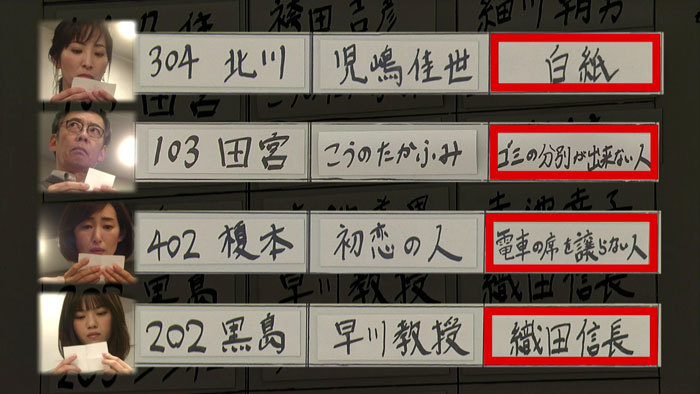 304 北川 児嶋佳世 白紙
103 田宮 こうのたかふみ ゴミの分別が出来ない人
402 榎本 初恋の人 電車の席を譲らない人
202 黒島 早川教授 織田信長